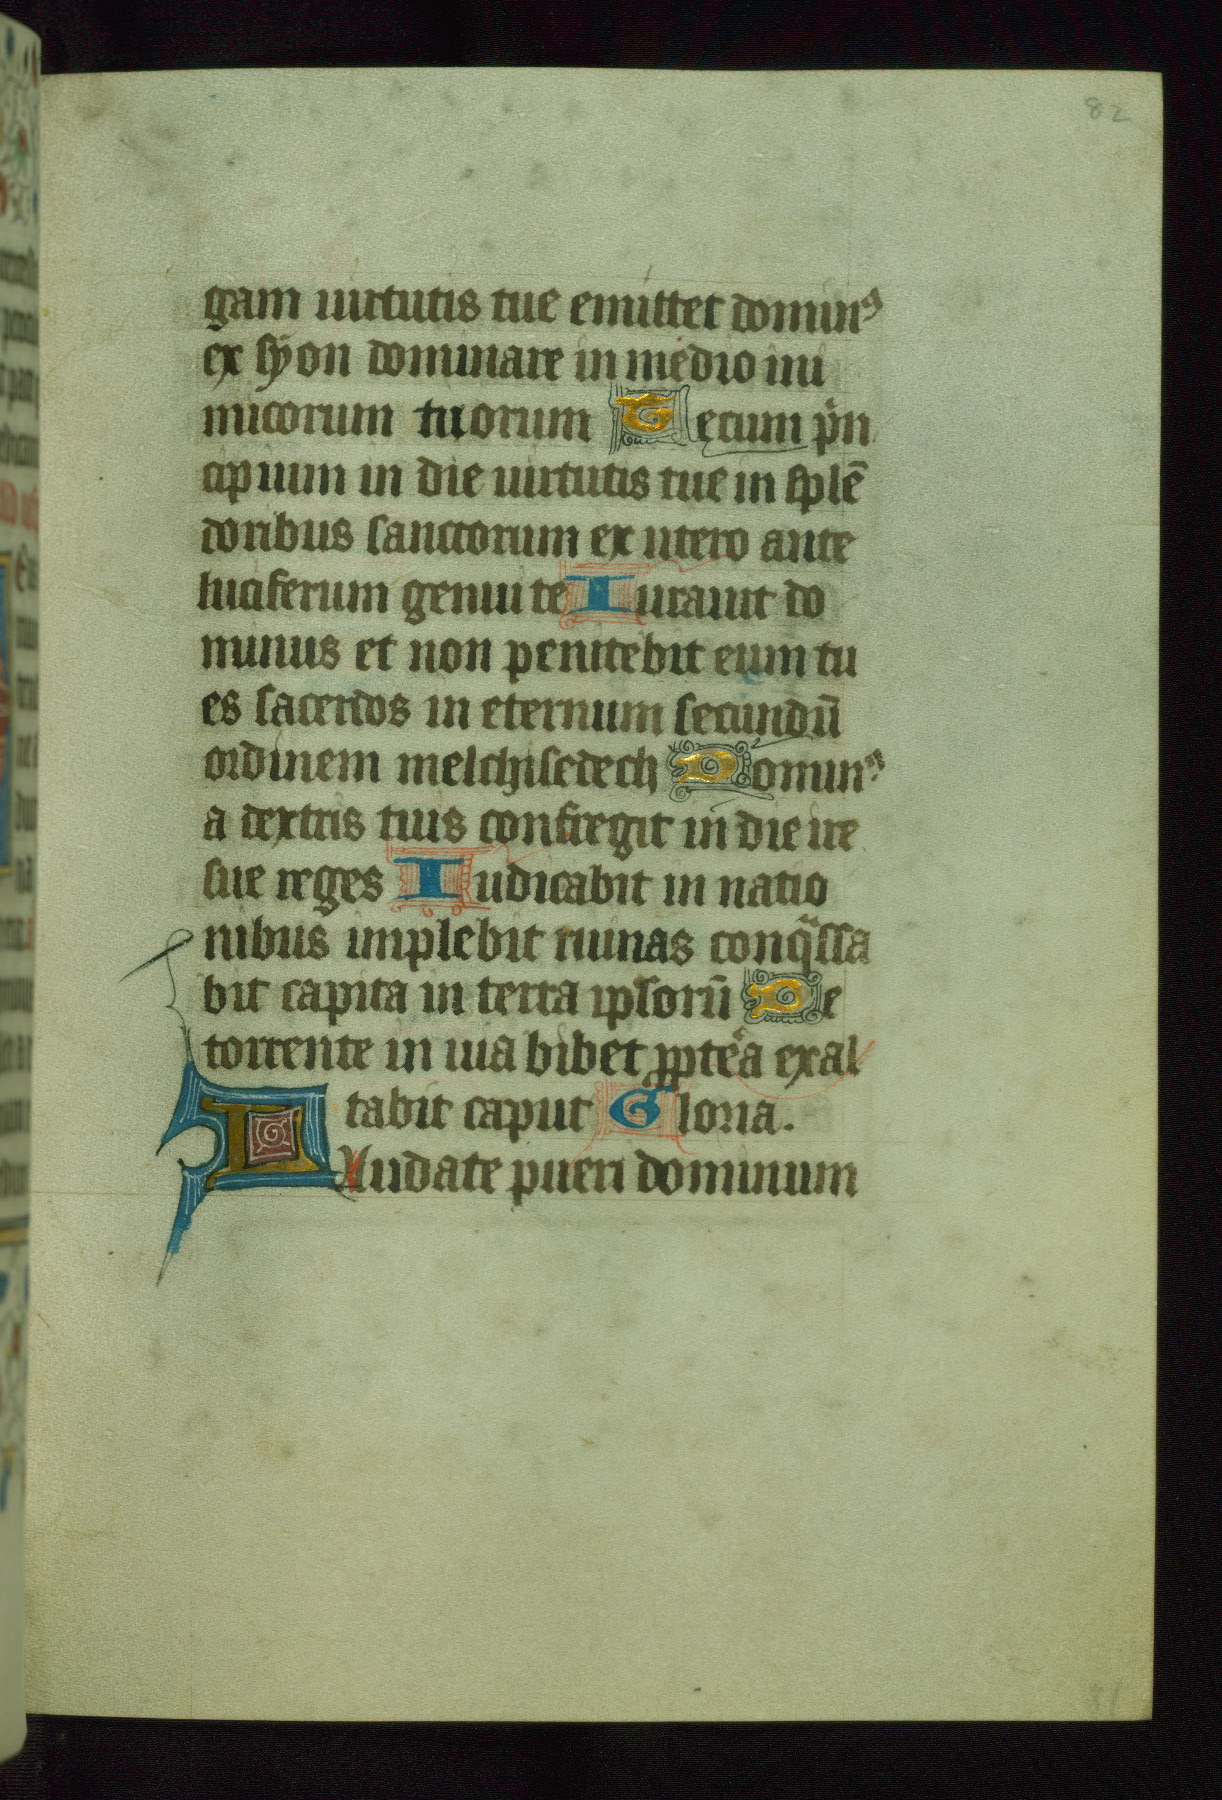 82
gam uirtutis tue emittet dominꝰ
ex syon dominare in medio ini
micorum tuorum Tecum pͥn
cipium in die uirtutis tue in splē
doribus sanctorum ex utero ante
luciferum genui te Iurauit do
minus et non penitebit eum tu
es sacerdos in eternum secundū
ordinem melchisedech Dominꝰ
a dextris tuis confregit in die ire
sue reges Iudicabit in natio
nibus implebit ruinas conqᷓssa
bit capita in terra ipsorū De
torrente in uia bibet ꝓpteᷓa exal
tabit caput Gloria.
Laudate pueri dominum
81